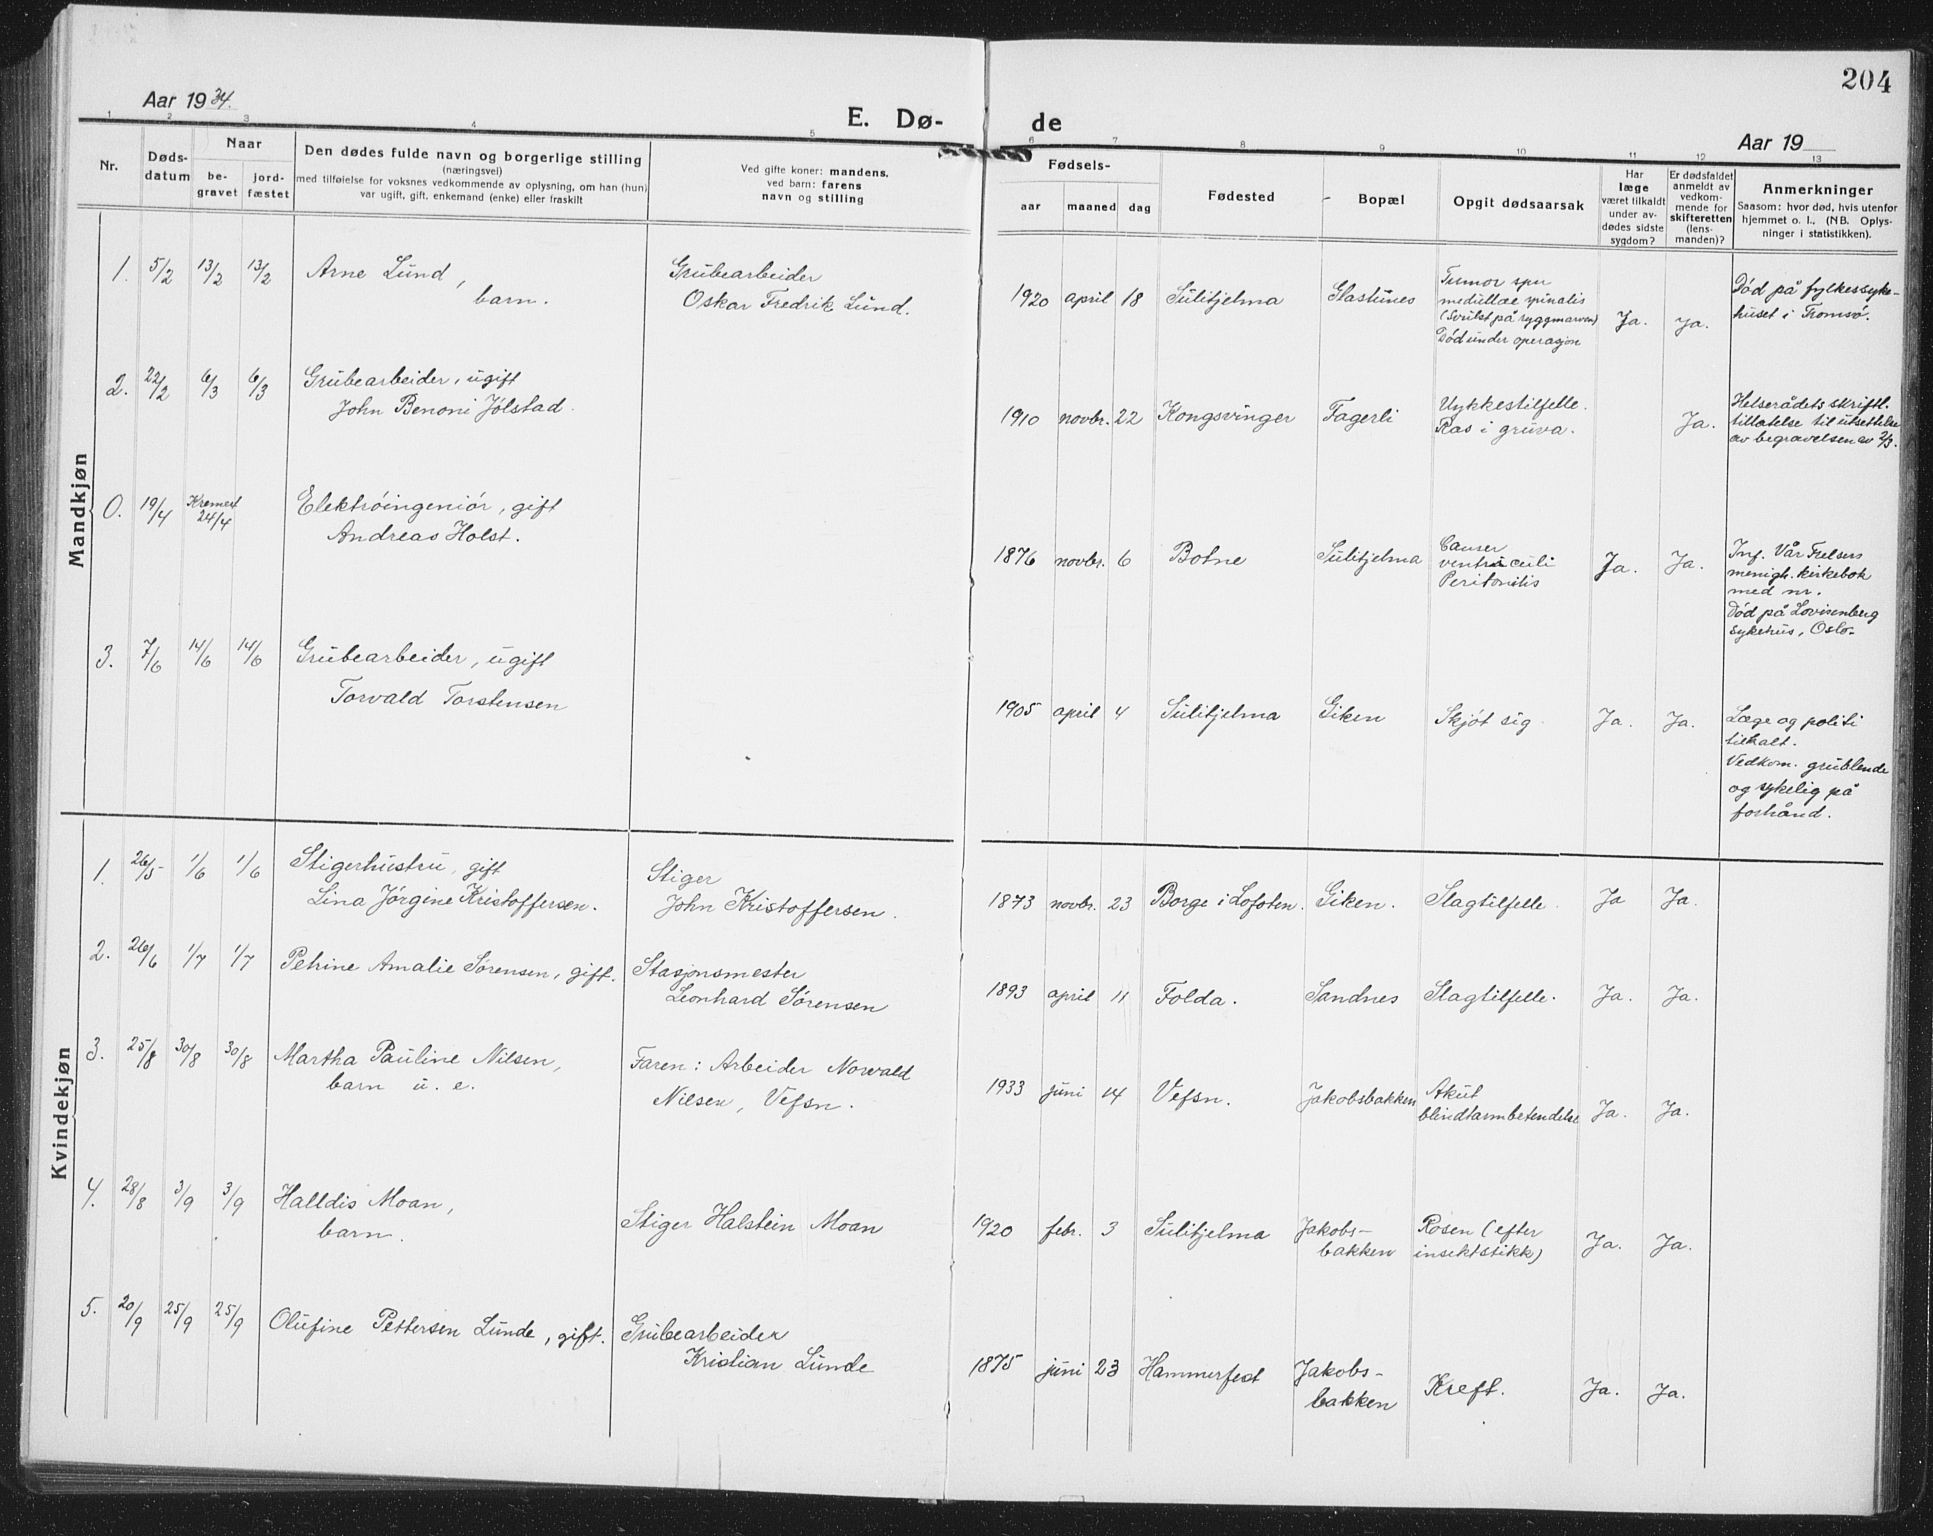 204
Aar 1934.
E. Dø-
de
Aar 19
1 2 3 4 5 6 7 8 9 10 11 12 13
Nr.
Døds-
datum
Naar
be-
gravet
jord-
fæstet
Den dødes fulde navn og borgerlige stilling
(næringsvei)
med tilføielse for voksnes vedkommende av oplysning, om han (hun)
var ugift, gift, enkemand (enke) eller fraskilt
Ved gifte koner: mandens,
ved barn: farens
navn og stilling
Fødsels-
aar
maaned
dag
Fødested
Bopæl
Opgit dødsaarsak
Har
læge
været tilkaldt
under av-
dødes sidste
sygdom?
Er dødsfaldet
anmeldt av
vedkom-
mende for
skifteretten
(lens-
manden)?
Anmerkninger
Saasom: hvor død, hvis utenfor
hjemmet o. l., (NB. Oplys-
ninger i statistikken).
Mandkjøn
1. 5/2 13/2 13/2 Arne Lund,
barn.
Grubearbeider
Oskar Fredrik Lund.
1920 april 18 Sulitjelma Glastunes
Tumor spu
medullae spinalis
(Svulst på ryggmarven)
Død under operasjon
Ja. Ja.
Død på fylkessyke-
huset i Tromsø.
2. 22/2 6/3 6/3 Grubearbeider, ugift
John Benoni Jølstad.
1910 novbr. 22 Kongsvinger Fagerli
Ulykkestilfelle.
Ras i gruva.
Ja.
Helserådets skriftl.
tillatelse til utsettelse
av begravelsen av 2/3.
0. 19/4 Kremert
24/4
Elektroingeniør, gift
Andreas Holst.
1876 novbr. 6 Botne Sulitjelma
Canser
ventriculi
Peritonitis
Ja. Ja.
Inf. Vår Frelsers
menigh. kirkebok
med nr.
Død på Lovisenberg
sykehus, Oslo.
3. 7/6 14/6 14/6 Grubearbeider, ugift
Torvald Torstensen
1905 april 4 Sulitjelma Giken Skjøt sig. Ja. Ja.
Læge og politi
tilkalt.
Vedkom. grublende
og sykelig på
forhånd.
Kvindekjøn
1. 26/5 1/6 1/6 Stigerhustru, gift
Lina Jørgine Kristoffersen.
Stiger
John Kristoffersen.
1873 novbr. 23 Borge i Lofoten. Giken. Slagtilfelle. Ja Ja.
2. 26/6 1/7 1/7 Petrine Amalie Sørensen, gift.
Stasjonsmester
Leonhard Sørensen
1893 april 11 Folda. Sandnes Slagtilfelle. Ja. Ja.
3. 25/8 30/8 30/8 Martha Pauline Nilsen,
barn u. e.
Faren: Arbeider Norvald
Nilsen, Vefsn.
1933 juni 14 Vefsn. Jakobsbakken
Akut
blindtarmbetendelse
Ja. Ja.
4. 28/8 3/9 3/9 Halldis Moan,
barn.
Stiger Halstein Moan
1920 febr. 3 Sulitjelma Jakobs-
bakken
Rosen (efter
insektstikk)
Ja. Ja.
5. 20/9 25/9 25/9 Olufine Pettersen Lunde, gift.
Grubearbeider
Kristian Lunde
1875 juni 23 Hammerfest Jakobs-
bakken
Kreft. Ja. Ja.